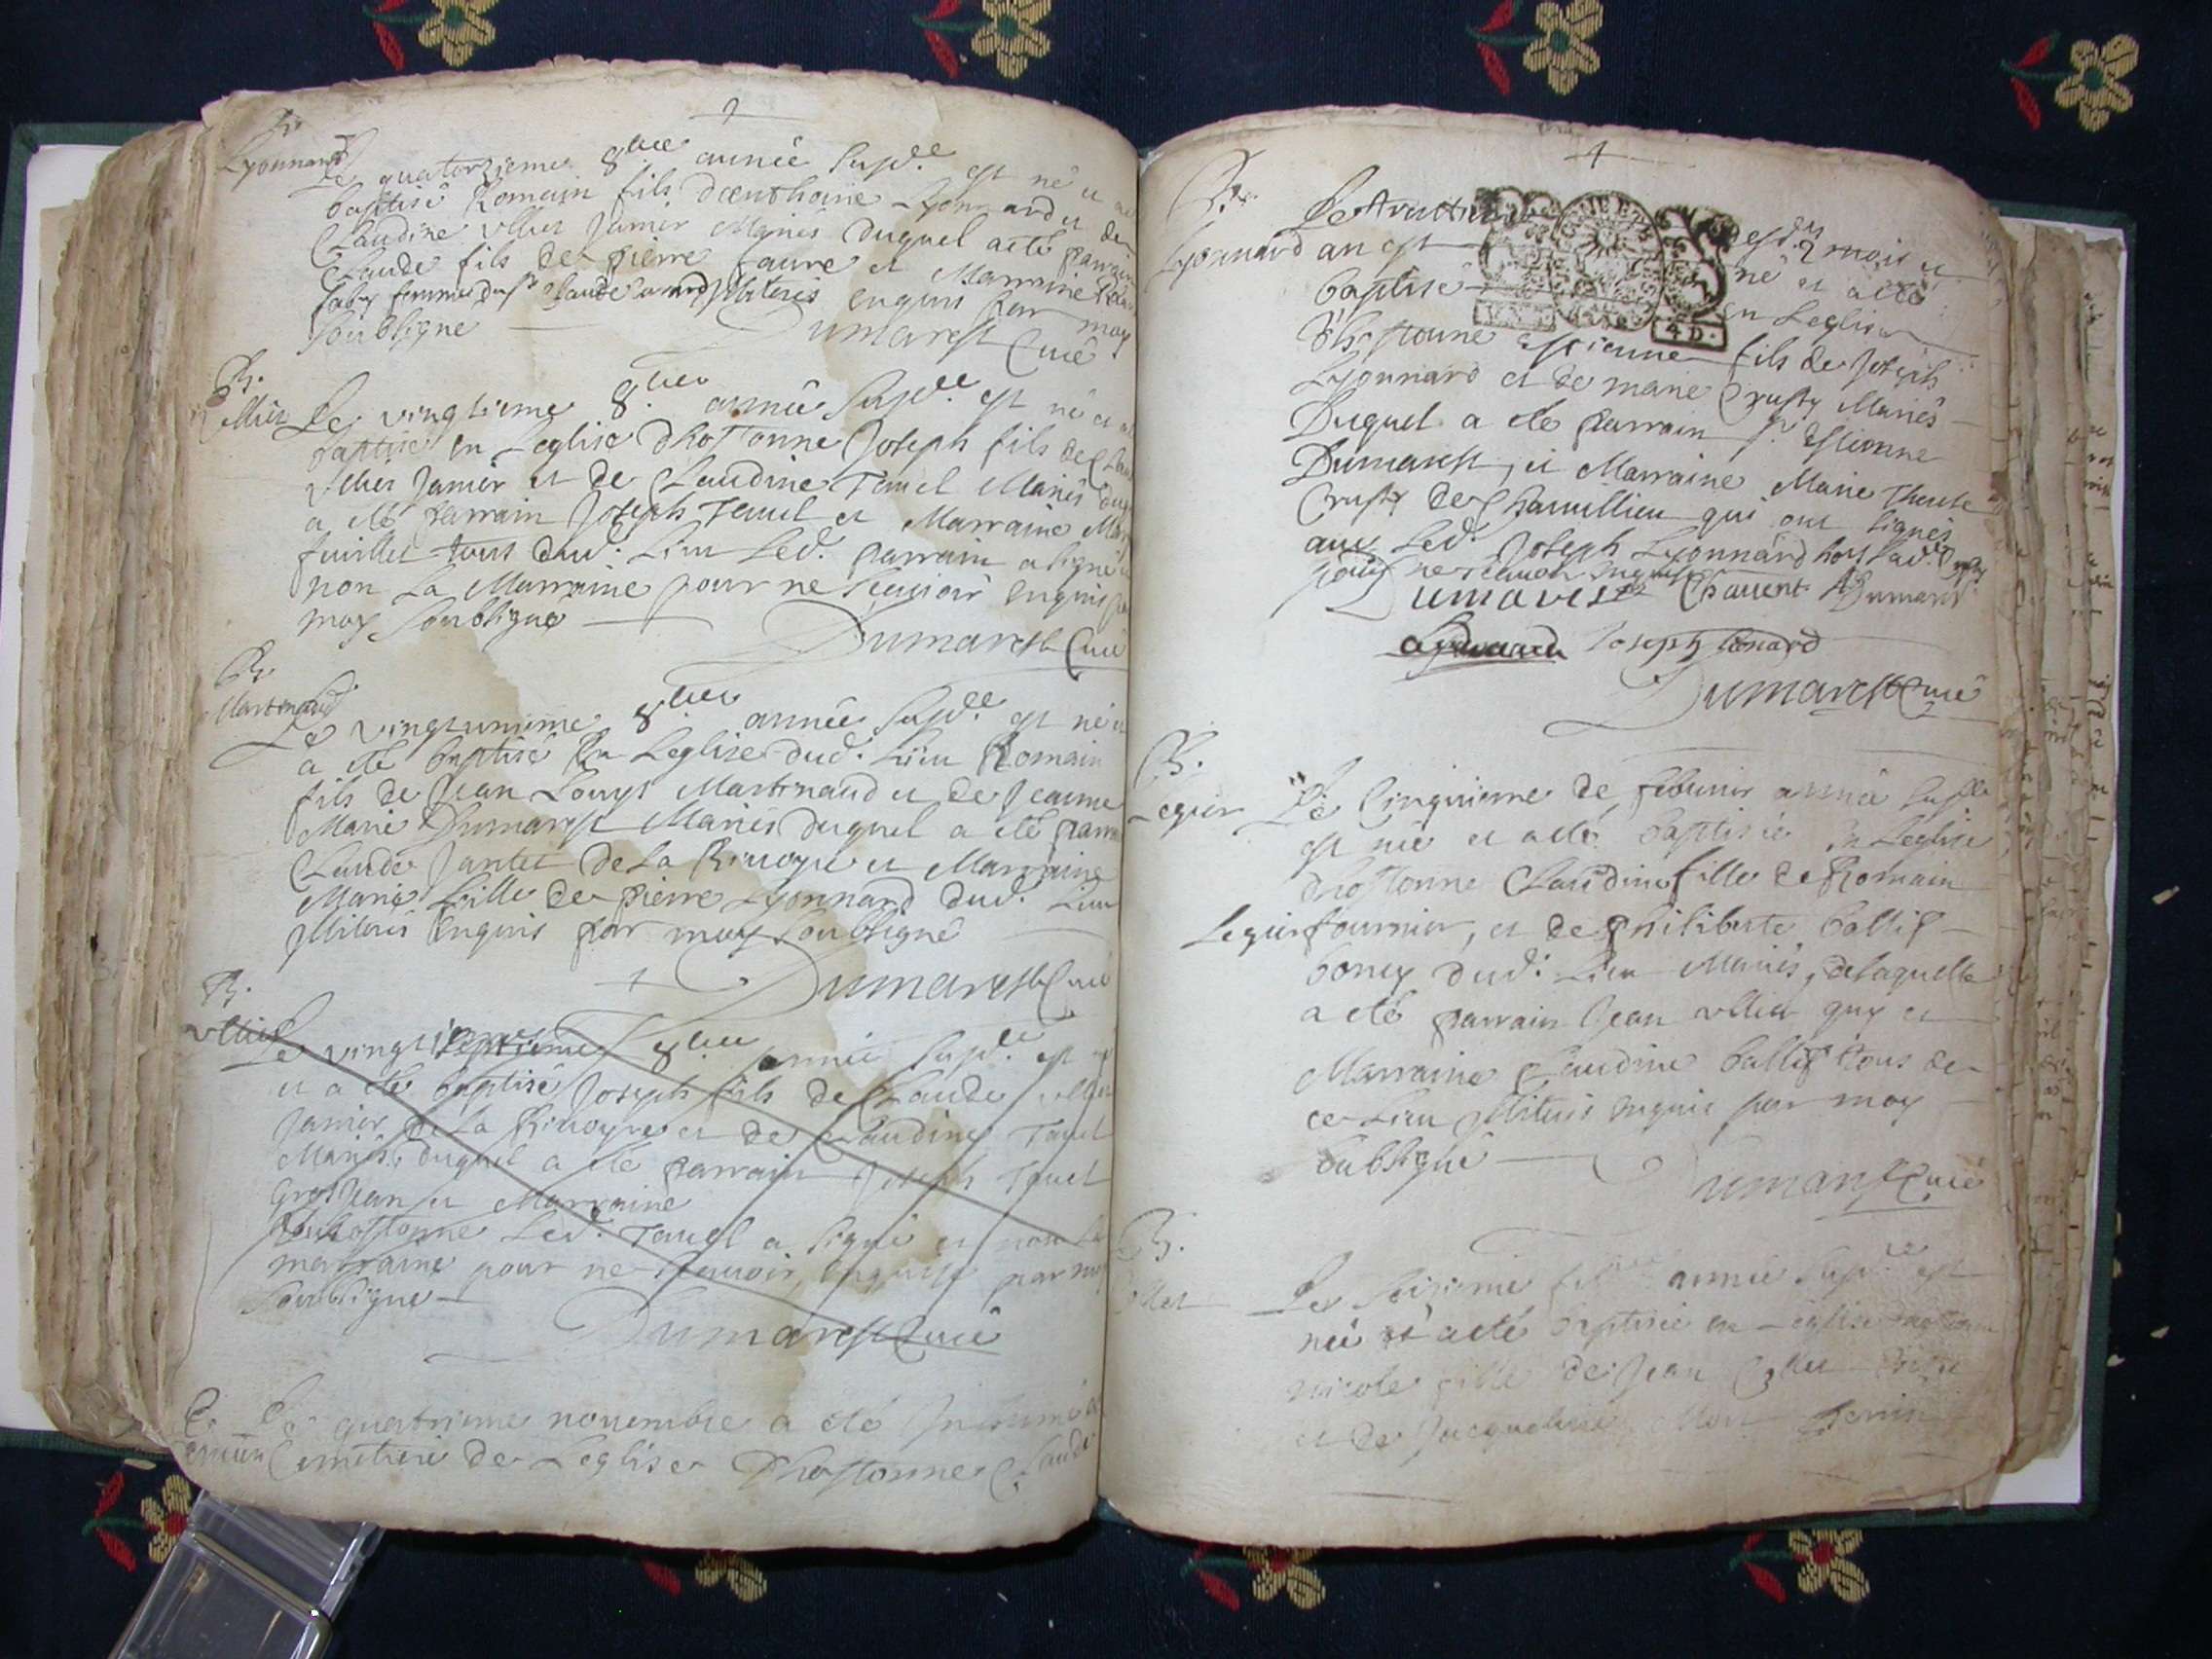 B.
Lyonnard
Le quatorzieme 8bre année susd.e est né et a
baptisé Romain fils danthoine Lyonnard et de
Claudine vllier Janier Mariés duquel a eté parrain
Claude fils de pierre faure et Marraine
femme du Claude illiterés enquis par moy
soubsigné
Dumarest Curé
B.
vllier
Le vingtieme 8bre année susd.e est né et a
baptisé en Leglise dhostonne Joseph fils de Claude
vllier Janier et de Claudine Tauel Mariés duq
a eté parrain Joseph Tauel et Marraine Mar
Juillet tous dud. Lieu Led. parrain a signé
non La Marraine pour ne scauoir enquis p
moy soubsigné
Dumarest Curé
B.
Martinaud
Le vingtunieme 8bre année susd.ee est né et
a eté baptisé En Leglise dud. Lieu Romain
fils de Jean Louys Martinaud et de Jeanne
Marie Dumarest Mariés duquel a eté parra
Claude Jantet de la Riuoyre et Marraine
Marie fille de pierre Lyonnard dud. Lieu
illiterés enquis par moy soubsigné
Dumarest Curé
B.
vllier
Le vingt septieme 8bre année susd.ee est
et a eté baptisé Joseph fils de Claude vllier
Janier de la Riuoyre et de Claudine Tauel
Mariés, duquel a eté parrain Joseph Tauel
Grosjean et Marraine
dhostonne Led. Tauel a signé et non la
marraine pour ne scauoir, enquise par moy
soubsigné
Dumarest Curé
Le quatrieme nouembre a eté Inhumé a
Cemetiere de Leglise Dhostonne Claude
B.
Lyonnard
Le
an est né et a eté
baptisé En Leglise
Dhostonne Estienne fils de Joseph
Lyonnard et de marie Crusty Mariés
Duquel a eté parrain s.r Estienne
Dumarest, et Marraine Marie Therese
Crusty de Chamillieu qui ont signés
auec Led. Joseph Lyonnard hors lad.
pour ne scauoir enquise
Dumarest Chauent Dumarest
Joseph lionard
Dumarest Curé
B.
Leguir
Le Cinquieme de feburier année susd.e
est née et a eté baptisée En Leglise
dhostonne Claudine fille de Romain
Leguir fournier, et de philiberte ballif
boney dud. Lieu Mariés, de laquelle
a eté parrain Jean vllier guy et
Marraine Claudine ballif tous de
ce Lieu illiterés enquis par moy
soubsigné
Dumarest Curé
B.
Le seizieme année susd.e est
née et a eté baptisée en Leglise dhostonne
nicole fille de Jean
et de Jacqueline